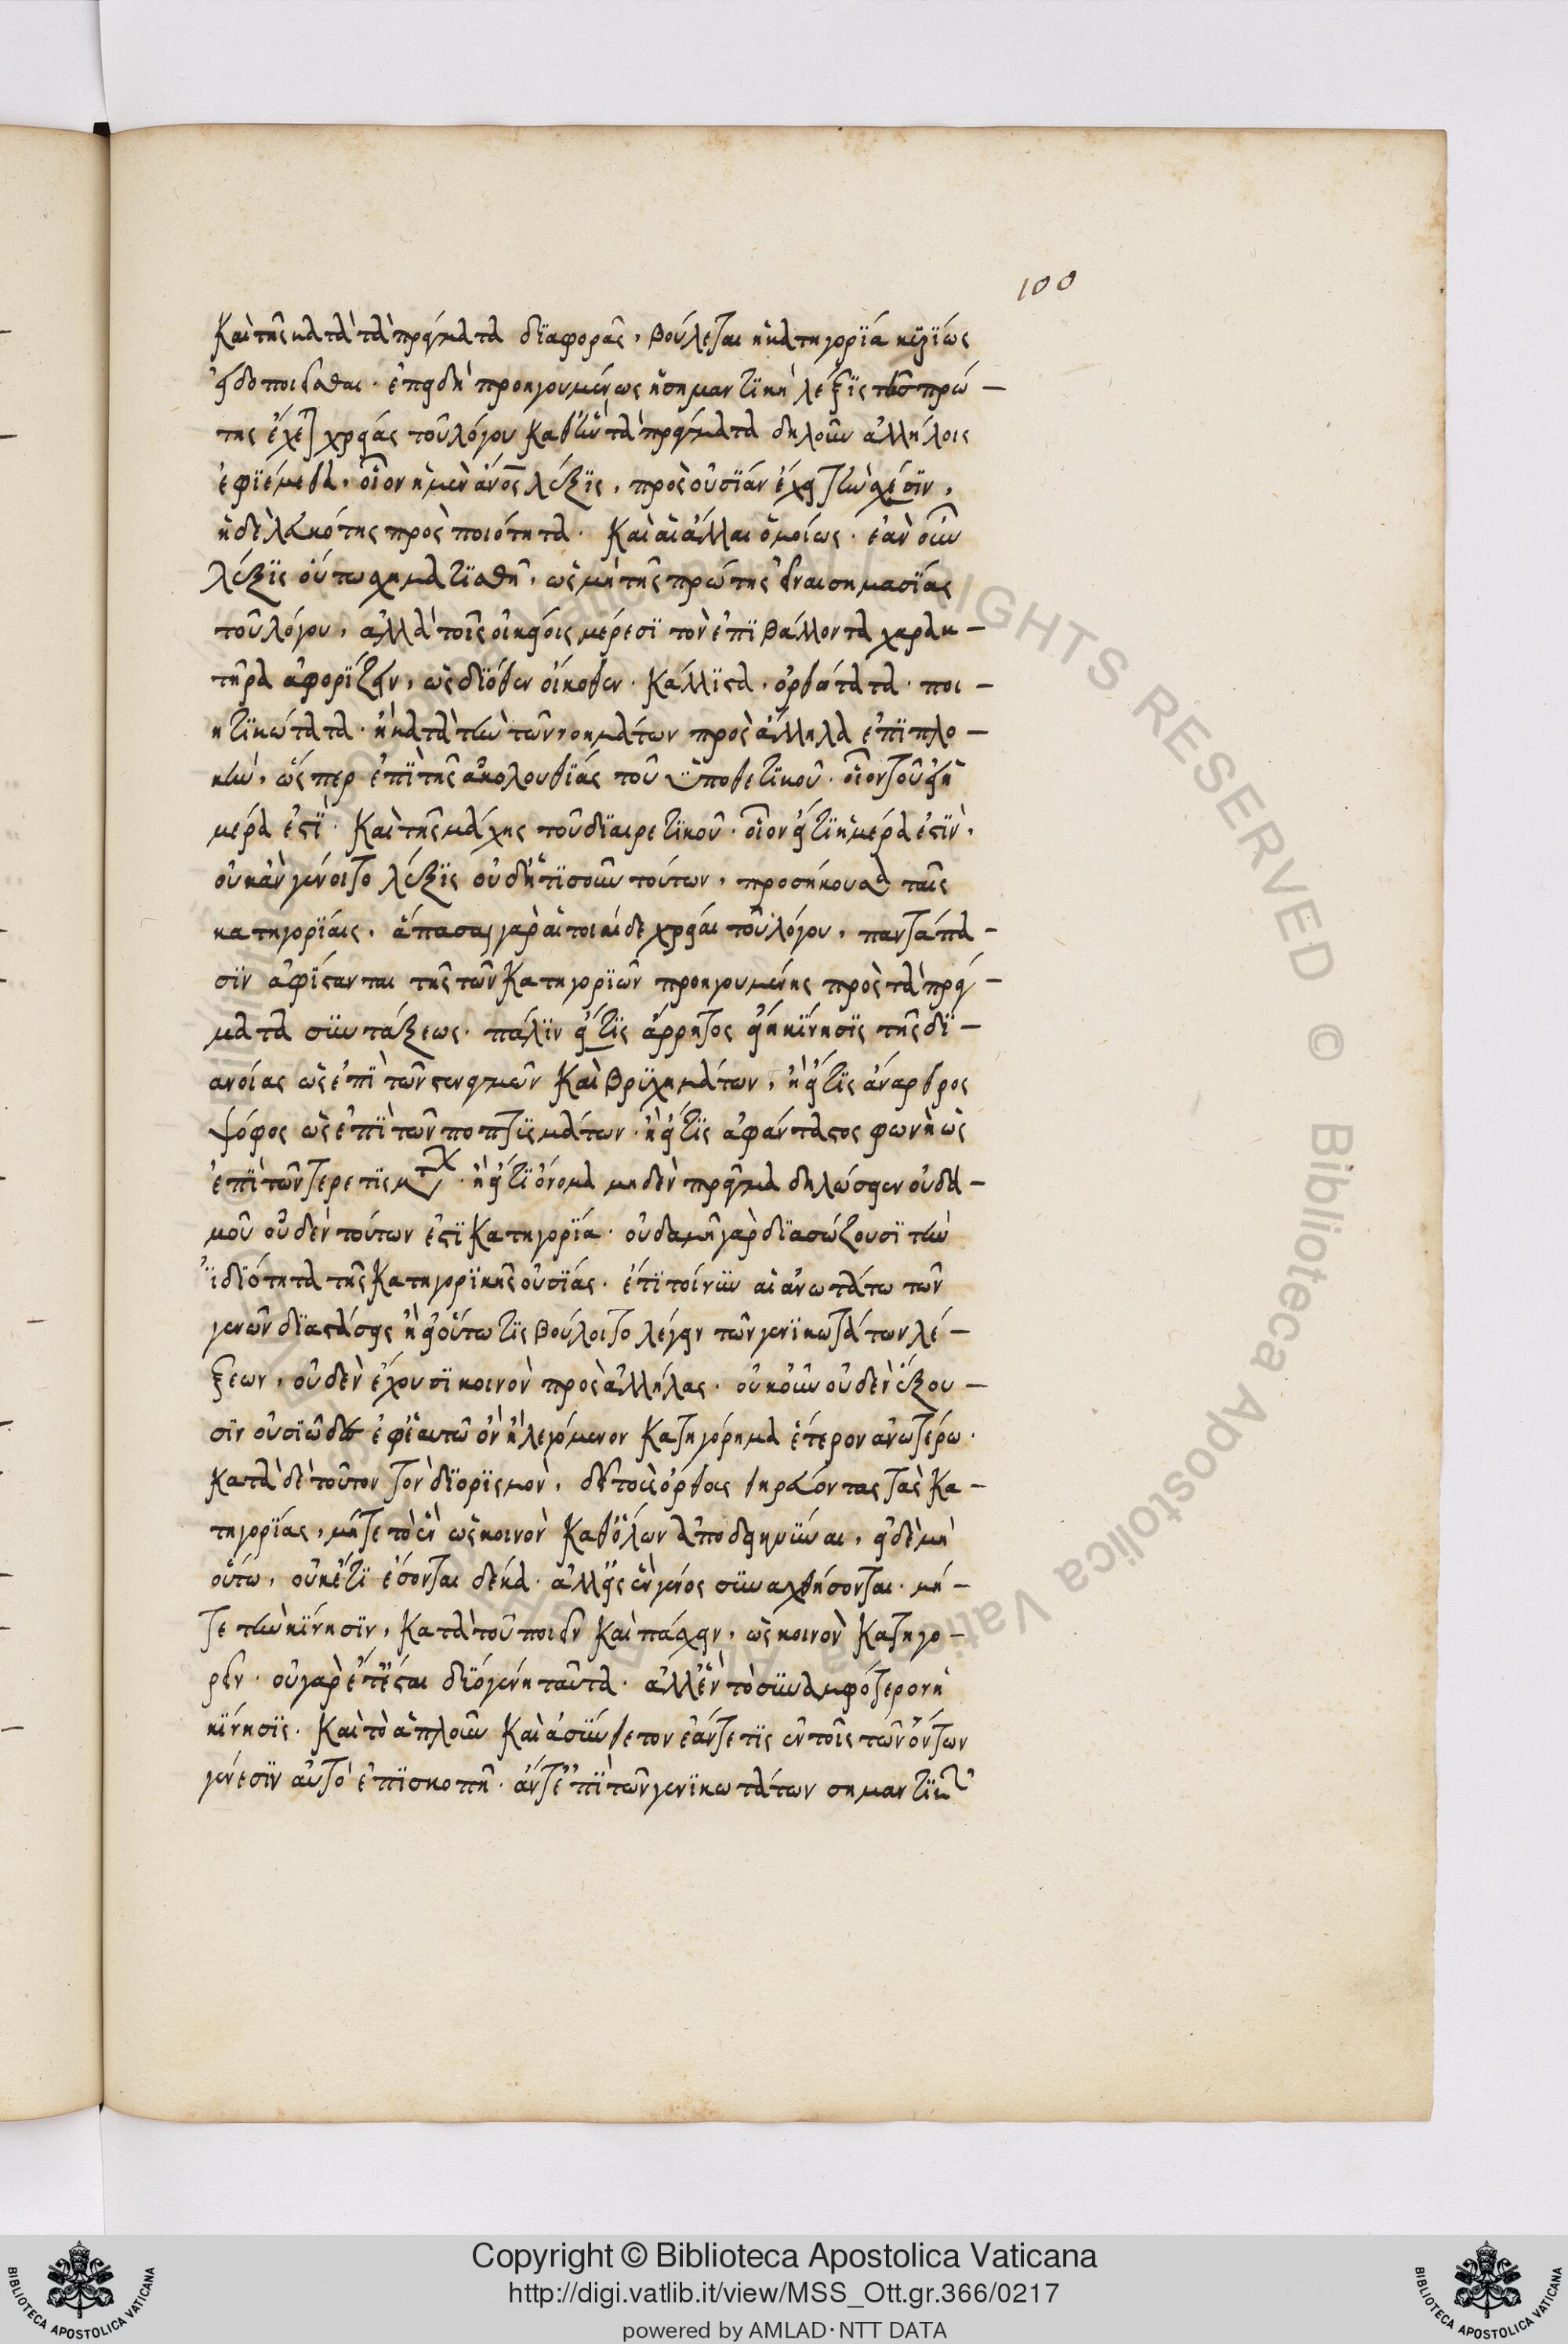 100
Καὶ τῆς κατὰ τὰ πράγματα διαφορᾶς, βούλεται ἡ κατηγορία κυρίως
εἰδοποιεῖσθαι· ἐπειδὴ προηγουμένως ἡ σημαντικὴ λέξις τῆς πρώ-
της ἔχεται χρείας τοῦ λόγου καθ' ἣν τὰ πράγματα δηλοῦν ἀλλήλοις
ἐφιέμεθα, οἷον ἡ μὲν ἄνος λέξις, πρὸς οὐσίαν ἔχει τὴν σχέσιν,
ἡ δὲ λευκότης πρὸς ποιότητα· Καὶ αἱ ἄλλαι ὁμοίως· ἐὰν οὖν
λέξις οὕτω σχηματισθῇ, ὡς μὴ τῆς πρώτης εἶναι σημασίας
τοῦ λόγου, ἀλλὰ τοῖς οἰκείοις μέρεσι τὸν ἐπιβάλλοντα χαρακ-
τῆρα ἀφορίζειν, ὡς διόθεν οἴκοθεν· Κάλλιστα, ὀρθότατα· ποι-
ητικώτατα· ἢ κατὰ τὴν τῶν νοημάτων πρὸς ἄλληλα ἐπιπλο-
κὴν, ὥσπερ ἐπὶ τῆς ἀκολουθίας τοῦ ὑποθετικοῦ· οἷον τοῦ εἰ ἡ
μέρα ἐστὶ· Καὶ τῆς μάχης τοῦ διαιρετικοῦ· οἷον εἴτι ἡμέρα ἐστὶν,
οὐκ ἂν γένοιτο λέξις οὐδ' ἥτισοῦν τούτων, προσήκουσα ταῖς
κατηγορίαις, ἅπασαι γὰρ αἱ τοιαίδε χρεῖαι τοῦ λόγου, παντάπα-
σιν ἀφίστανται τῆς τῶν Κατηγοριῶν προηγουμένης πρὸς τὰ πρά-
ματα συντάξεως· πάλιν εἴ τις ἄρρητος εἴη κίνησις τῆς δι-
ανοίας ὡς ἐπὶ τῶν στεναγμῶν Καὶ βριχημάτων, ἢ εἴ τις ἄναρθρος
ψόφος ὡς ἐπὶ τῶν ποππισμάτων· ἢ εἴ τις ἀφάνταστος φωνὴ ὡς
ἐπὶ τῶν τερετισμάτων· ἢ εἴ τι ὄνομα μηδὲν πρᾶγμα δηλώσειεν οὐδα-
μοῦ οὐδὲν τούτων ἐστὶ Κατηγορία· οὐδαμῆ γὰρ διασώζουσι τὴν
ἰδιότητα τῆς Κατηγορικῆς οὐσίας· ἔτι τοίνυν αἱ ἀνωτάτω τῶν
γενῶν διαστάσεις ἢ εἰ οὕτω τις βούλοιτο λέγειν τῶν γενικωτάτων λέ-
ξεων, οὐδὲν ἔχουσι κοινὸν πρὸς ἀλλήλας· οὐκοῦν οὐδὲν ἕξου-
σιν οὐσιῶδες ἐφ' ἑαυτῶ ὂν ἢ λεγόμενον Κατηγόρημα ἕτερον ἀνωτέρω·
Κατὰ δὲ τοῦτον τὸν διορισμὸν, δεῖ τοὺς ὀρθῶς θηρεύοντας τὰς Κα-
τηγορίας, μήτε τὸ ὂν ὡς κοινὸν Καθόλων ἀποδεικνύναι, εἰ δὲ μὴ
οὕτω, οὐκέτι ἔσονται δέκα· ἀλλ' εἰς ἓν γένος συναχθήσονται· μή-
τε τὴν κίνησιν, Κατὰ τοῦ ποιεῖν Καὶ πάσχειν, ὡς κοινὸν Κατηγο-
ρεῖν· οὐ γὰρ ἔτ' ἔσται δύο γένη ταῦτα· ἀλλ' ἓν τὸ συναμφότερον ἡ
κίνησις· Καὶ τὸ ἁπλοῦν Καὶ ἀσύνθετον ἐάν τέ τις ἐν τοῖς τῶν ὄντων
γένεσιν αὐτὸ ἐπισκοπῆ· ἄν τε ἐπὶ τῶν γενικωτάτων σημαντικ
Copyright © Biblioteca Apostolica Vaticana
http://digi.vatlib.it/view/MSS_Ott.gr.366/0217
powered by AMLAD·NTT DATA
BIBLIOTECA APOSTOLICA VATICANA
BIBLIOTECA APOSTOLICA VATICANA